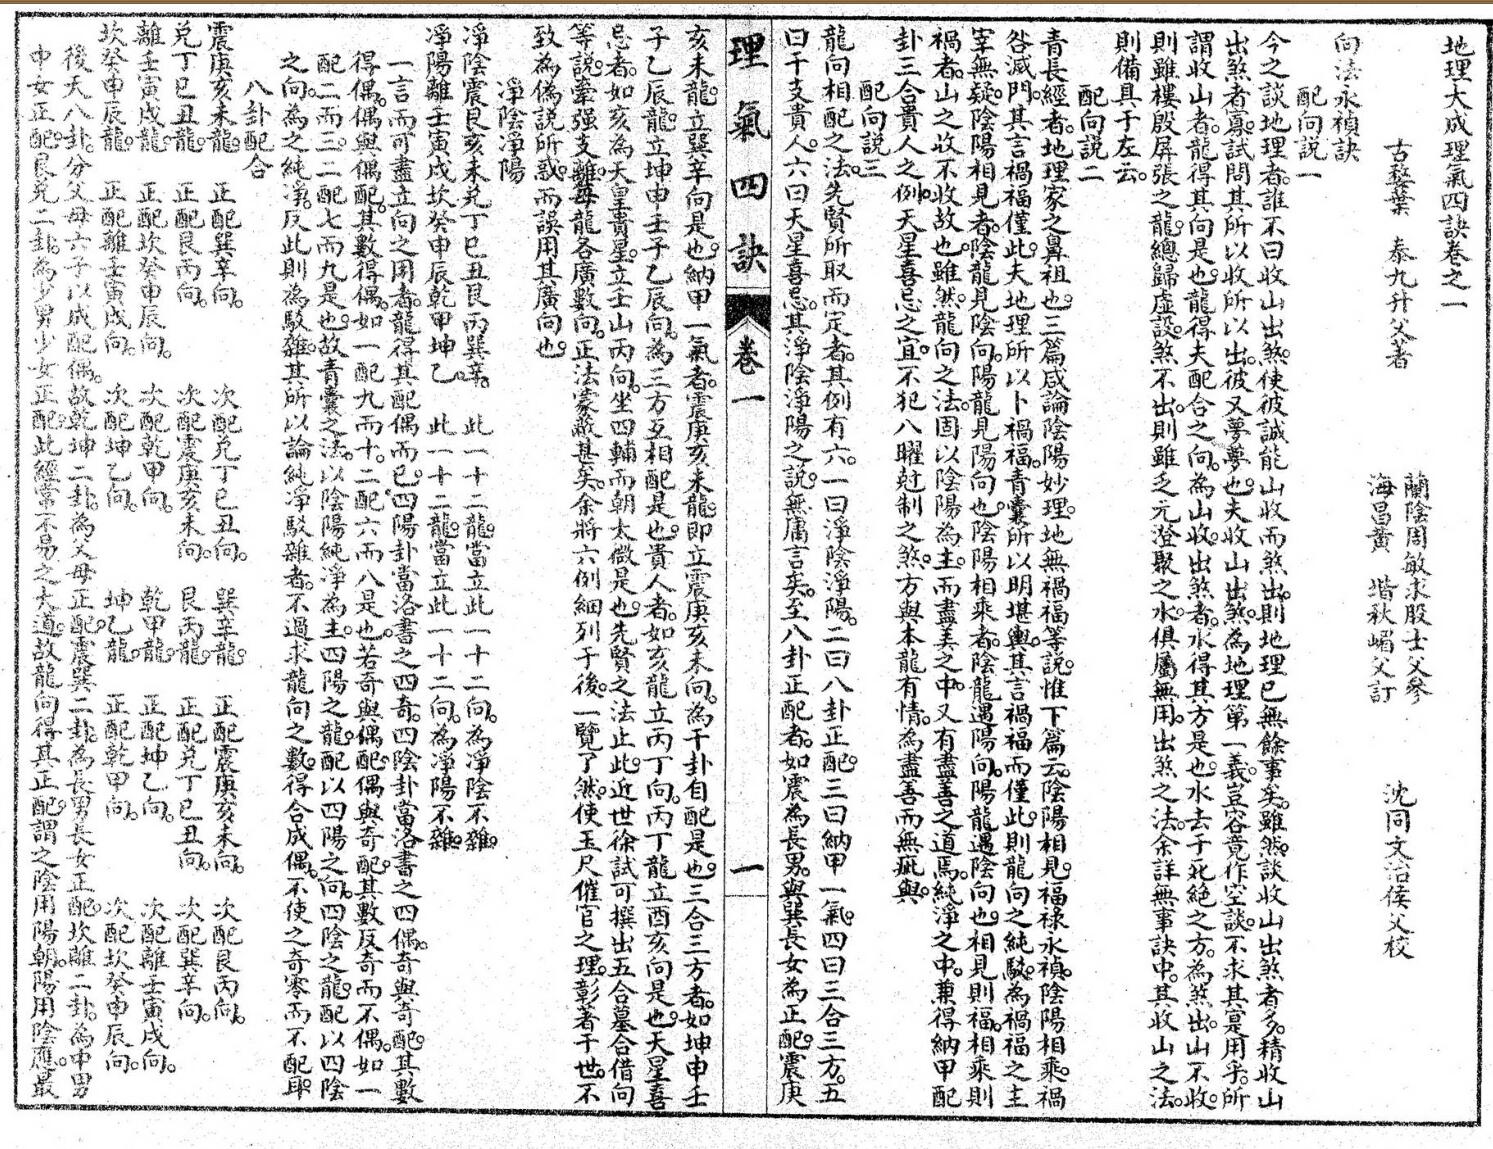 地理大成理氣四訣卷之一
古婺葉　泰九升父著
蘭陰周敏求殷士父參
海昌黃　堦秋嵋父訂
沈同文洽侯父校
向法永禎訣
配向說一
今之談地理者誰不曰收山出煞使彼誠能山收而煞出則地理已無餘事矣雖然談收山出煞者多精收山
出煞者寡試問其所以收所以出彼又夢夢也夫收山出煞為地理第一義豈容竟作空談不求其寔用乎所
謂收山者龍得其向是也龍得夫配合之向為山收出煞者水得其方是也水去于死絕之方為煞出山不收
則雖樓殿屏張之龍總歸虛設煞不出則雖乏元澄聚之水俱屬無用出煞之法余詳無事訣中其收山之法
則備具于左云
配向說二
青長經者地理家之鼻祖也三篇咸論陰陽妙理地無禍福等說惟下篇云陰陽相見福祿永禎陰陽相乘禍
咎滅門其言禍福僅此夫地理所以卜禍福青囊所以明堪輿其言禍福而僅此則龍向之純駁為禍福之主
宰無疑陰陽相見者陰龍見陰向陽龍見陽向也陰陽相乘者陰龍遇陽向陽龍遇陰向也相見則福相乘則
禍者山之收不收故也雖然龍向之法固以陰陽為主而盡美之中又有盡善之道焉純淨之中兼得納甲配
卦三合貴人之例天星喜忌之宜不犯八曜尅制之煞方與本龍有情為盡善而無疵與
配向說三
龍向相配之法先賢所取而定者其例有六一曰淨陰淨陽二曰八卦正配三曰納甲一氣四曰三合三方五
曰干支貴人六曰天星喜忌其淨陰淨陽之說無庸言矣至八卦正配者如震為長男與巽長女為正配震庚
理氣四訣　卷一　一
亥未龍立巽辛向是也納甲一氣者震庚亥未龍即立震庚亥未向為干卦自配是也三合三方者如坤申壬
子乙辰龍立坤申壬子乙辰向為三方互相配是也貴人者如亥龍立丙丁向丙丁龍立酉亥向是也天星喜
忌者如亥為天皇貴星立壬山丙向坐四輔而朝太微是也先賢之法止此近世徐試可撰出五合墓合借向
等說牽强支離每龍各廣數向正法蒙蔽甚矣余將六例細列于後一覽了然使玉尺催官之理彰著于世不
致為偽說所惑而誤用其廣向也
淨陰淨陽
淨陰震艮亥未兌丁巳丑艮丙巽辛　此一十二龍當立此一十二向為淨陰不雜
淨陽離壬寅戌坎癸申辰乾甲坤乙　此一十二龍當立此一十二向為淨陽不雜
一言而可盡立向之用者龍得其配偶而已四陽卦當洛書之四奇四陰卦當洛書之四偶奇與奇配其數
得偶偶與偶配其數得偶如一配九而十二配六而八是也若奇與偶配偶與奇配其數反奇而不偶如一
配二而三二配七而九是也故青囊之法以陰陽純淨為主四陽之龍配以四陽之向四陰之龍配以四陰
之向為之純淨反此則為駁雜其所以論純淨駁雜者不過求龍向之數得合成偶不使之奇零而不配耳
八卦配合
震庚亥未龍　正配巽辛向　次配兌丁巳丑向　巽辛龍　正配震庚亥未向　次配艮丙向
兌丁巳丑龍　正配艮丙向　次配震庚亥未向　艮丙龍　正配兌丁巳丑向　次配巽辛向
離壬寅戌龍　正配坎癸申辰向　次配乾甲向　乾甲龍　正配坤乙向　次配離壬寅戌向
坎癸申辰龍　正配離壬寅戌向　次配坤乙向　坤乙龍　正配乾甲向　次配坎癸申辰向
後天八卦分父母六子以成配偶故乾坤二卦為父母正配震巽二卦為長男長女正配坎離二卦為中男
中女正配艮兌二卦為少男少女正配此經常不易之大道故龍向得其正配謂之陰用陽朝陽用陰應最